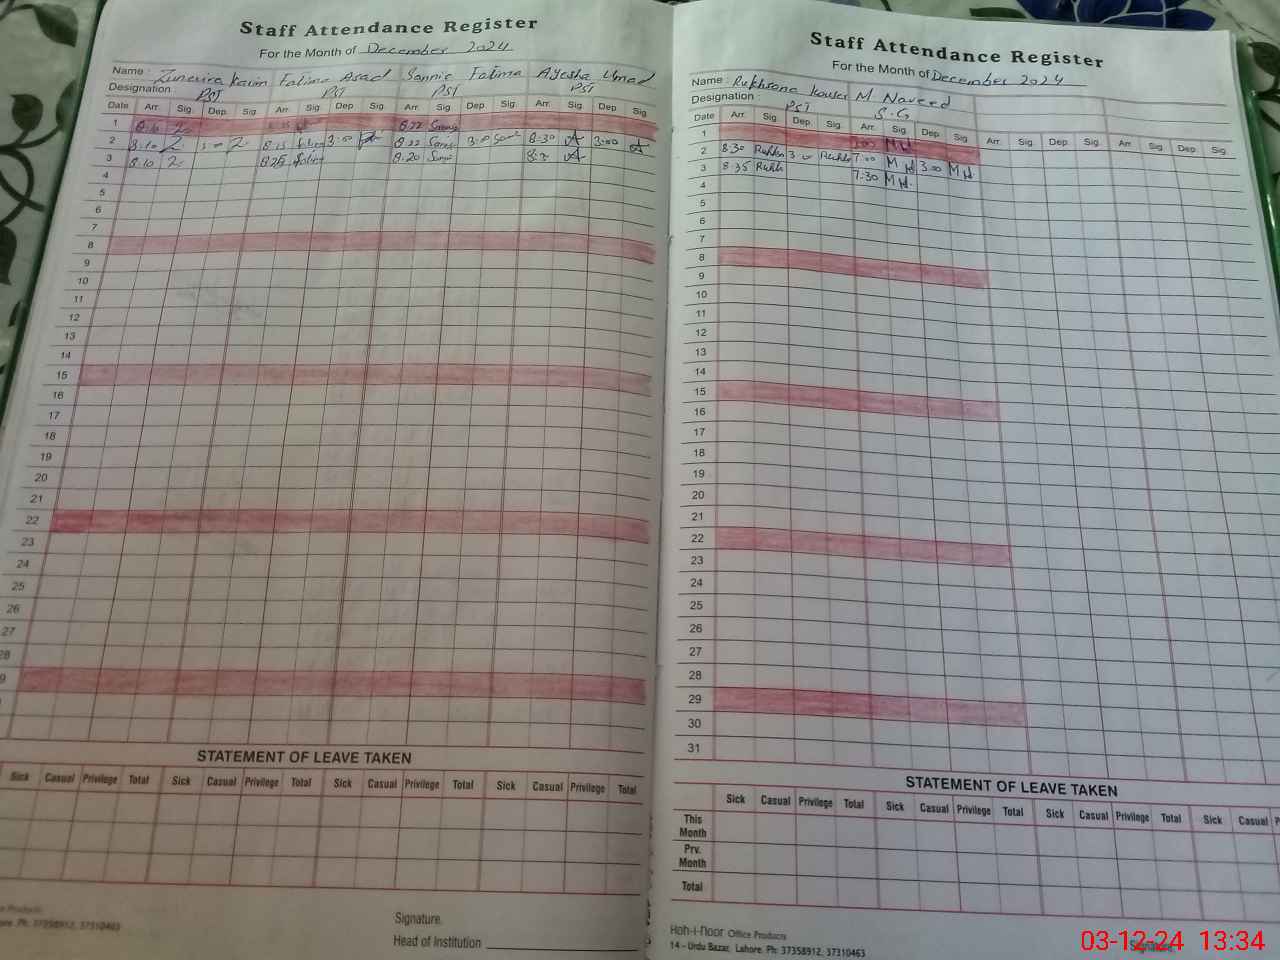 Staff Attendance Register
For the Month of December 2024
Name : Zunevira Karim Fatima Asad Sannie Fatima Ayesha Umad
Designation PST PST PST PST
Date Arr. Sig. Dep Sig. Arr. Sig. Dep Sig. Arr. Sig. Dep Sig. Arr. Sig. Dep Sig.
1 8.10 Z 8.22
2 8.10 Z Z 8.15 3:00 8.22 3:00 8:30 A 3:00 A
3 8.10 Z 8.25 8.20 A
4
5
6
7
8
9
10
11
12
13
14
15
16
17
18
19
20
21
22
23
24
25
26
27
28
9
STATEMENT OF LEAVE TAKEN
Sick Casual Privilege Total Sick Casual Privilege Total Sick Casual Privilege Total Sick Casual Privilege Total
Products
ore. Ph: 37358912, 37310463
Signature.
Head of Institution
Staff Attendance Register
For the Month of December 2024
Name : Rukhsana Kouser M Naveed
Designation : PST S.G
Date Arr. Sig. Dep Sig. Arr. Sig. Dep Sig. Arr. Sig. Dep Sig. Arr. Sig. Dep Sig.
1 M H
2 8.30 Rukhs 3 00 Rukhs 7.00 M H 3.00 M H
3 8.35 Rukhs 7.30 M H.
4
5
6
7
8
9
10
11
12
13
14
15
16
17
18
19
20
21
22
23
24
25
26
27
28
29
30
31
STATEMENT OF LEAVE TAKEN
Sick Casual Privilege Total Sick Casual Privilege Total Sick Casual Privilege Total Sick Casual P
This Month
Prv. Month
Total
Hoh-i-noor Office Products
14 - Urdu Bazar, Lahore. Ph: 37358912, 37310463
Signature
03-12-24 13:34